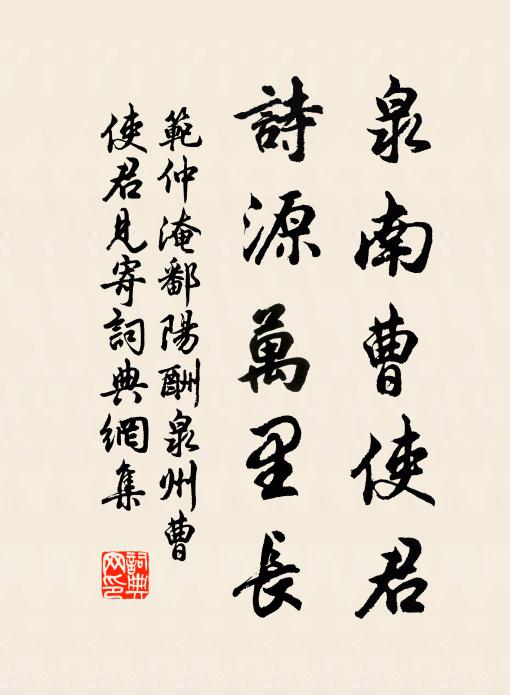 泉南曹使君
詩源萬里長
範仲淹鄱陽酬泉州曹
使君見寄詞典網集
詞典
网印